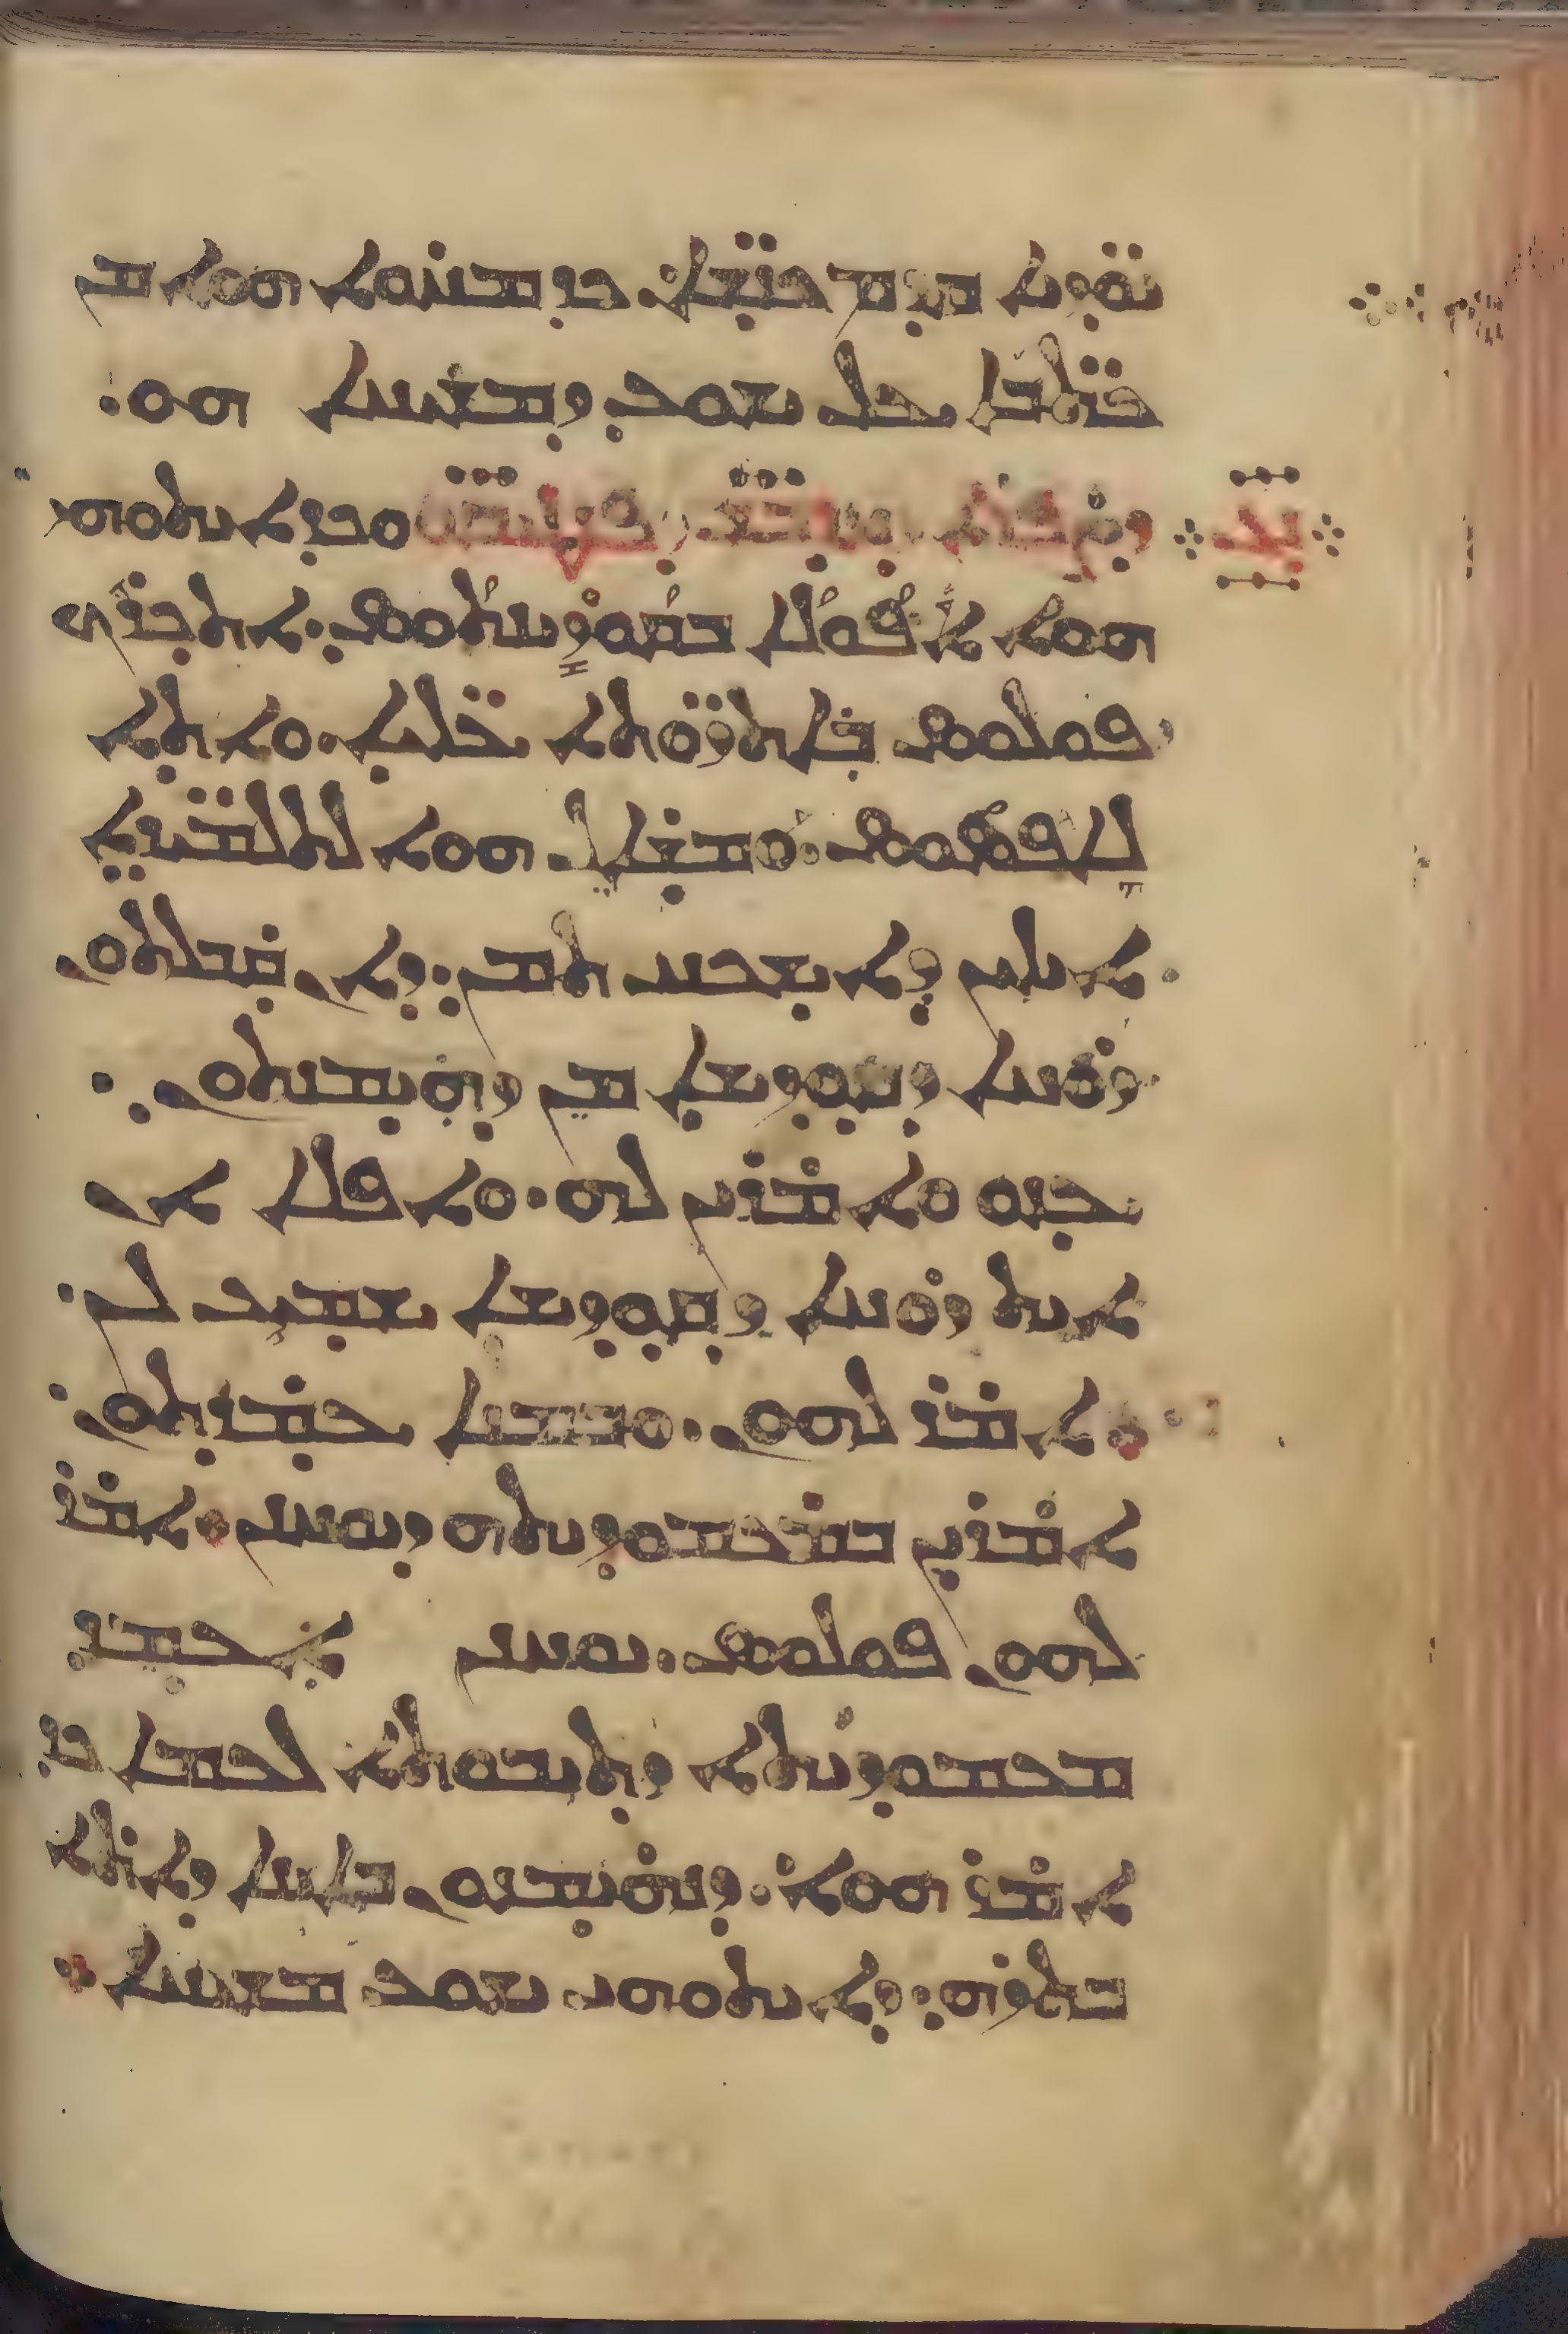 ܝܘ̈ܕܝܐ ܩܕܡ ܟܢ̈ܫܐ. ܟܕ ܡܚܘܐ ܗܘܐ ܡܢ
ܟܬ̈ܒܐ ܥܠ ܝܫܘܥ ܕܡܫܝܚܐ ܗܘ:
ܘܟܕ ܐܝܬܘܗܝ
ܗܘܐ ܐܦܘܠܐ ܒܩܘܪܝܢܬܘܣ. ܐܬܟܪܟ
ܦܘܠܘܣ ܒܐܬܪ̈ܘܬܐ ܥ̈ܠܝܐ. ܘܐܬܐ
ܠܐܦܣܘܣ. ܘܡܫܐܠ ܗܘܐ ܠܬܠܡܝ̈ܕܐ
ܐܝܠܝܢ ܕܐܫܟܚ ܬܡܢ: ܕܐܢ ܩܒܠܬܘܢ
ܪܘܚܐ ܕܩܘܕܫܐ ܡܢ ܕܗܝܡܢܬܘܢ.
ܥܢܘ ܘܐܡܪܝܢ ܠܗ. ܘܐܦܠܐ ܐܢ
ܐܝܬ ܪܘܚܐ ܕܩܘܕܫܐ ܫܡܝܥ ܠܢ.
ܐܡܪ ܠܗܘܢ. ܘܒܡܢܐ ܥܡܕܬܘܢ.
ܐܡܪܝܢ ܒܡܥܡܘܕܝܬܗ ܕܝܘܚܢܢ. ܐܡܪ
ܠܗܘܢ ܦܘܠܘܣ. ܝܘܚܢܢ ܐܥܡܕ
ܡܥܡܘܕܝܬܐ ܕܬܝܒܘܬܐ ܠܥܡܐ ܟܕ
ܐܡܪ ܗܘܐ. ܕܢܗܝܡܢܘܢ ܒܐܝܢܐ ܕܐܬܐ
ܒܬܪܗ: ܕܐܝܬܘܗܝ ܝܫܘܥ ܡܫܝܚܐ